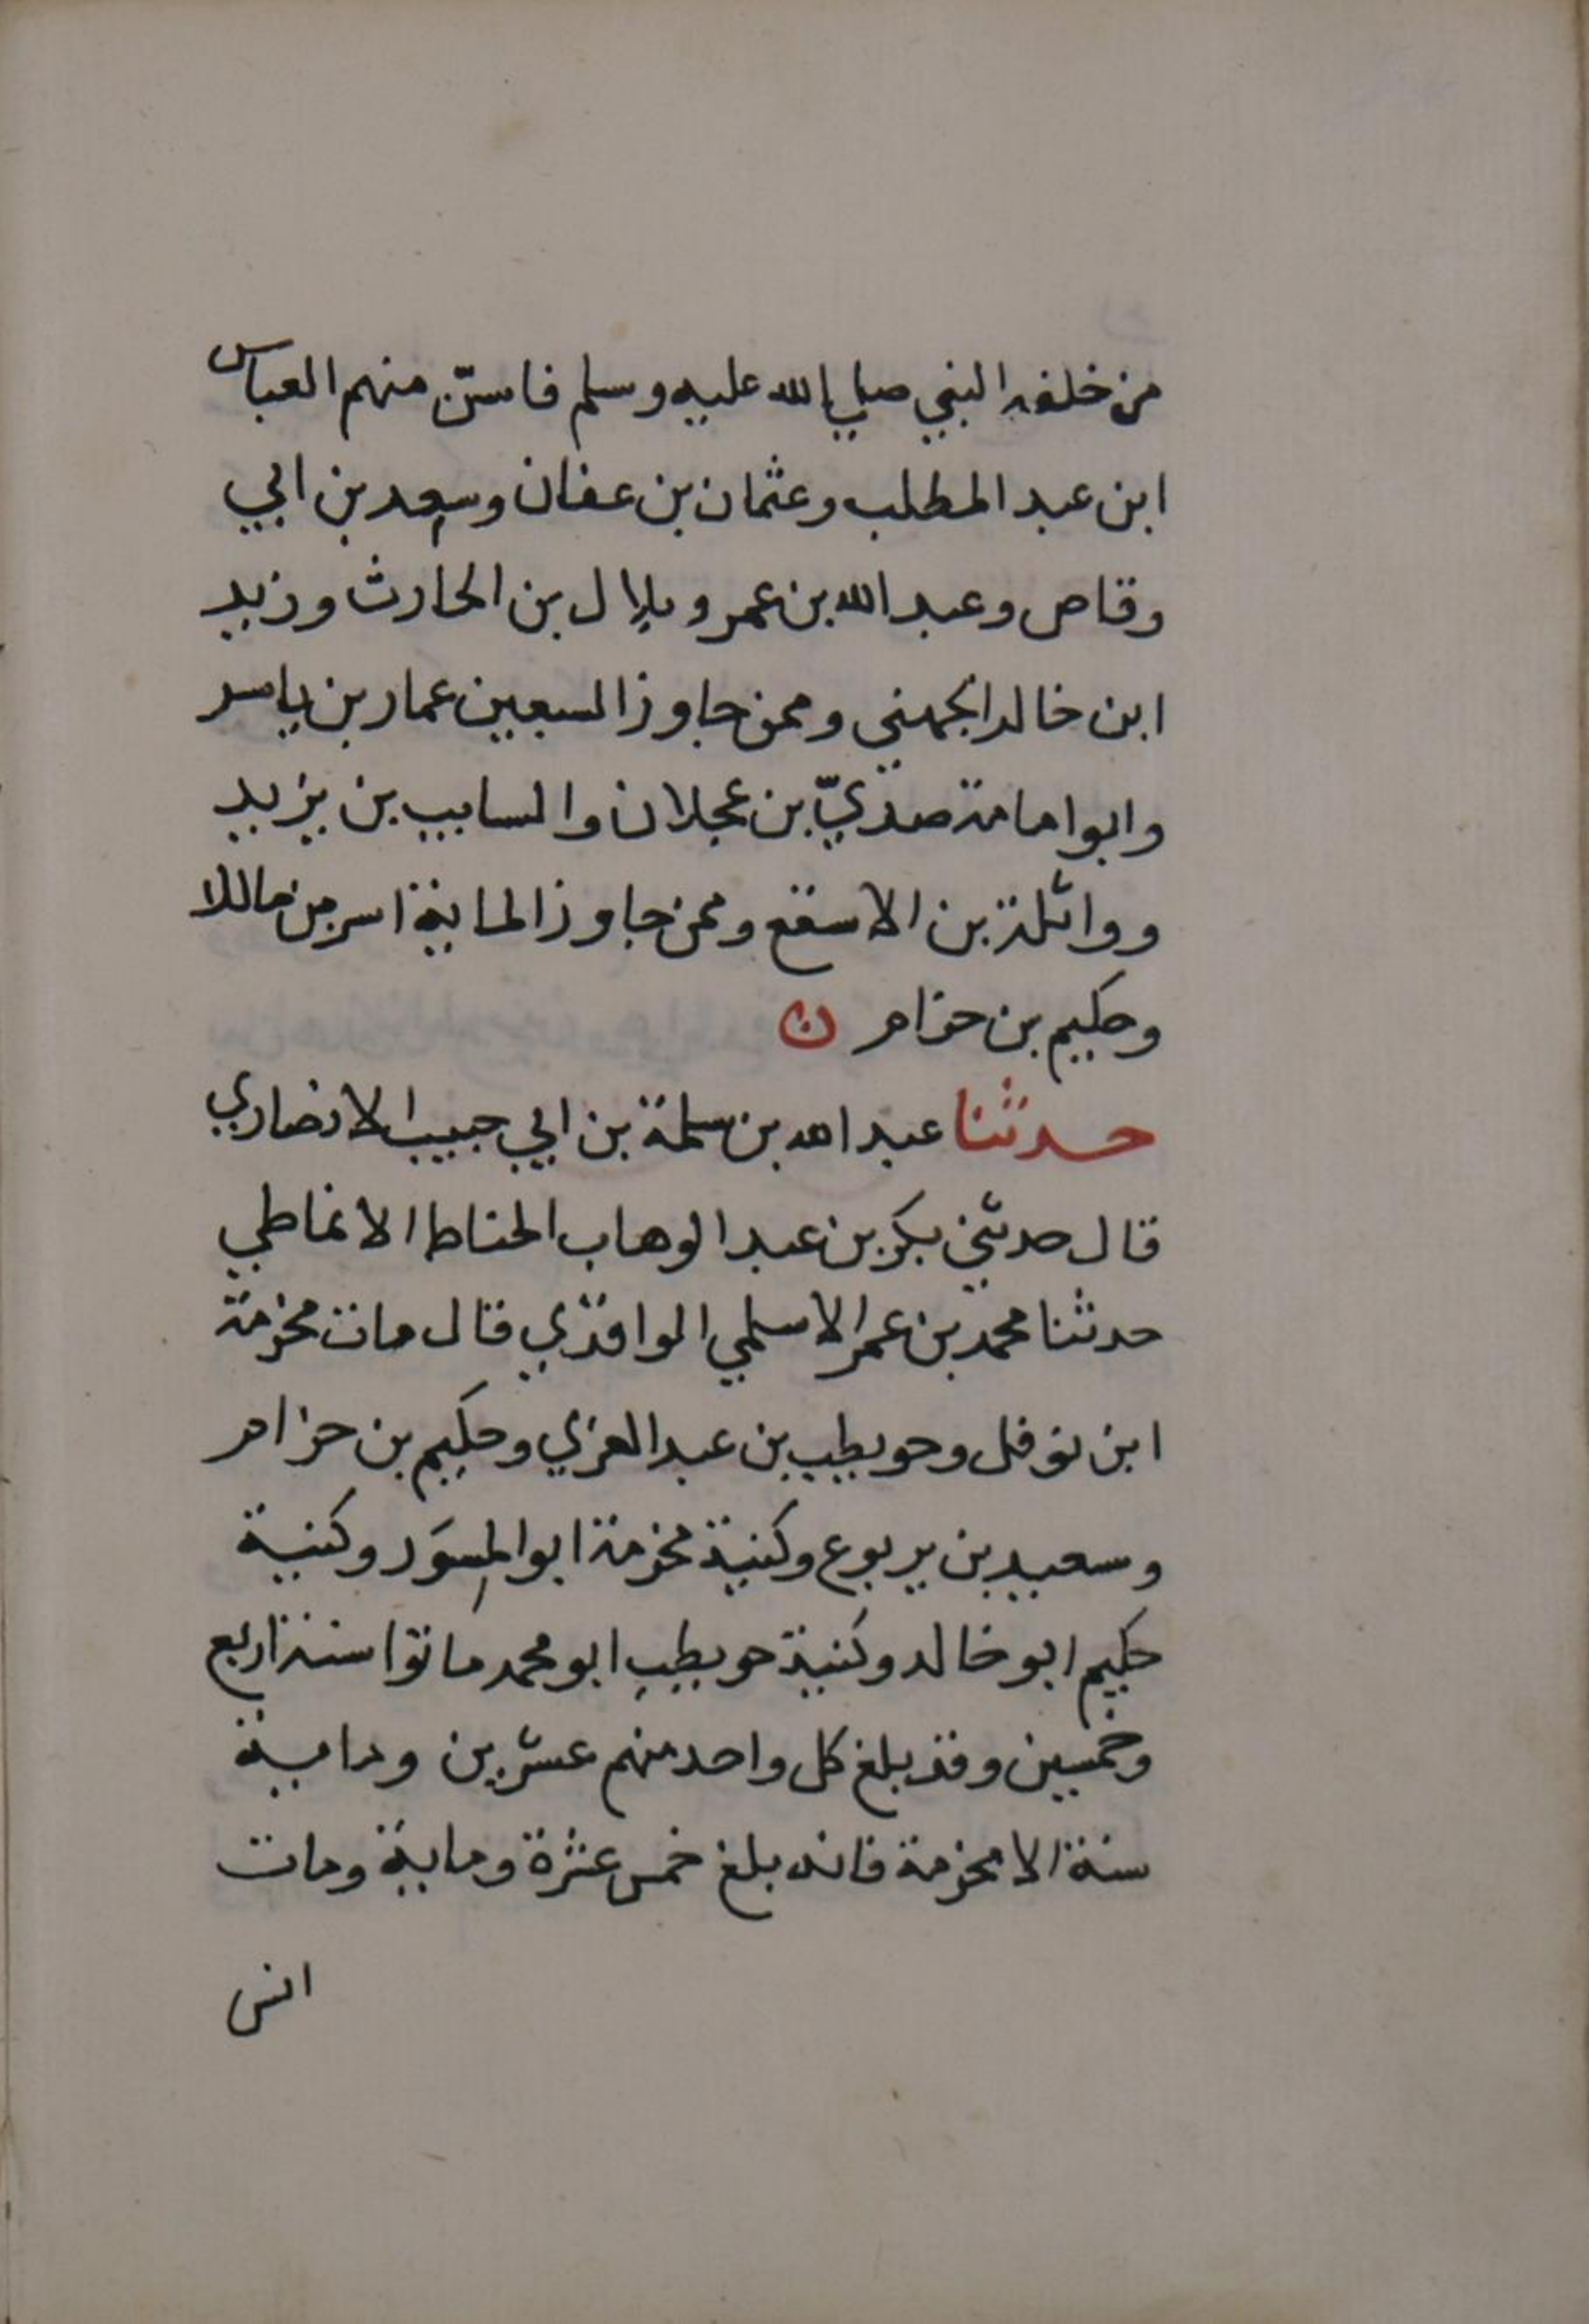 من خلفه النبي صلي الله عليه وسلم فاسنّ منهم العباس
ابن عبد المطلب وعثمان بن عفان وسعد بن ابي
وقاص وعبد الله بن عمر وبلال بن الحارث وزيد
ابن خالد الجهني وممن جاوز السبعين عمار بن ياسر
وابو امامة صديّ بن عجلان والسايب بن يزيد
وواثلة بن الاسقع وممن جاوز الماية انس بن مالك
وحكيم بن حزام ن
حدثنا عبد الله بن سلمة بن ابي حبيب الانصاري
قال حدثني بكر بن عبد الوهاب الحناط الانماطي
حدثنا محمد بن عمر الاسلمي الواقدي قال مات مخرمة
ابن نوفل وحويطب بن عبد العزي وحكيم بن حزام
وسعيد بن يربوع وكنية مخرمة ابو المِسوَر وكنية
حكيم ابو خالد وكنية حويطب ابو محمد ماتوا سنة اربع
وخمسين وقد بلغ كل واحد منهم عشرين وماية
سنة الا مخرمة فانه بلغ خمس عشرة وماية ومات
انس